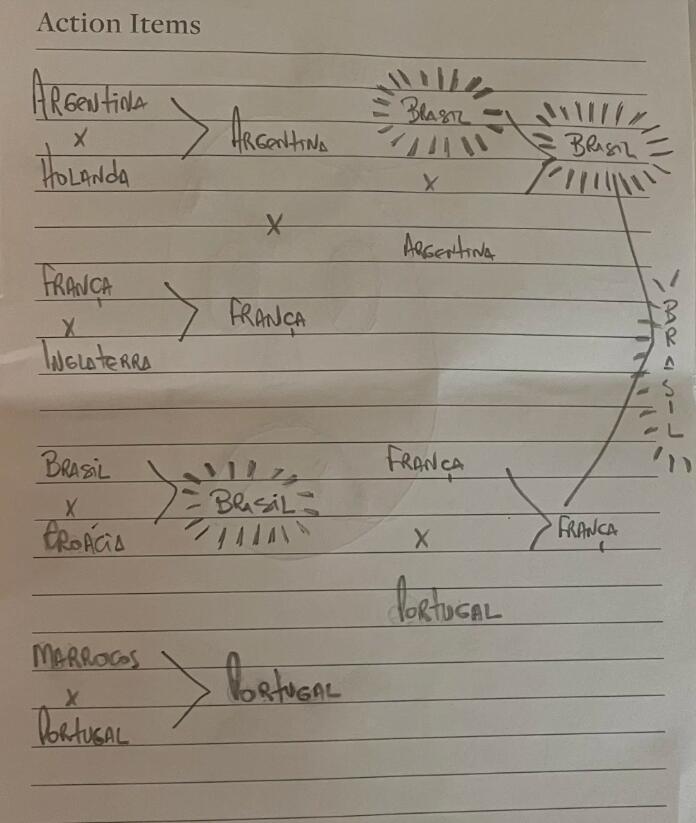 Action Items
ARGENTINA
X
HOLANDA
ARGENTINA
X
FRANÇA
X
INGLATERRA
FRANÇA
BRASIL
X
CROÁCIA
BRASIL
MARROCOS
X
PORTUGAL
PORTUGAL
BRASIL
X
ARGENTINA
BRASIL
FRANÇA
X
PORTUGAL
FRANÇA
BRASIL